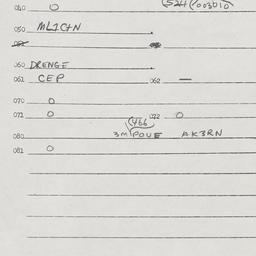 040 O (524) 003610
050 ML1CTN
060 DRENGE
061 CEP 062 —
070 O
071 O 072 O
(466)
080 3M POUE AK3RN
081 O